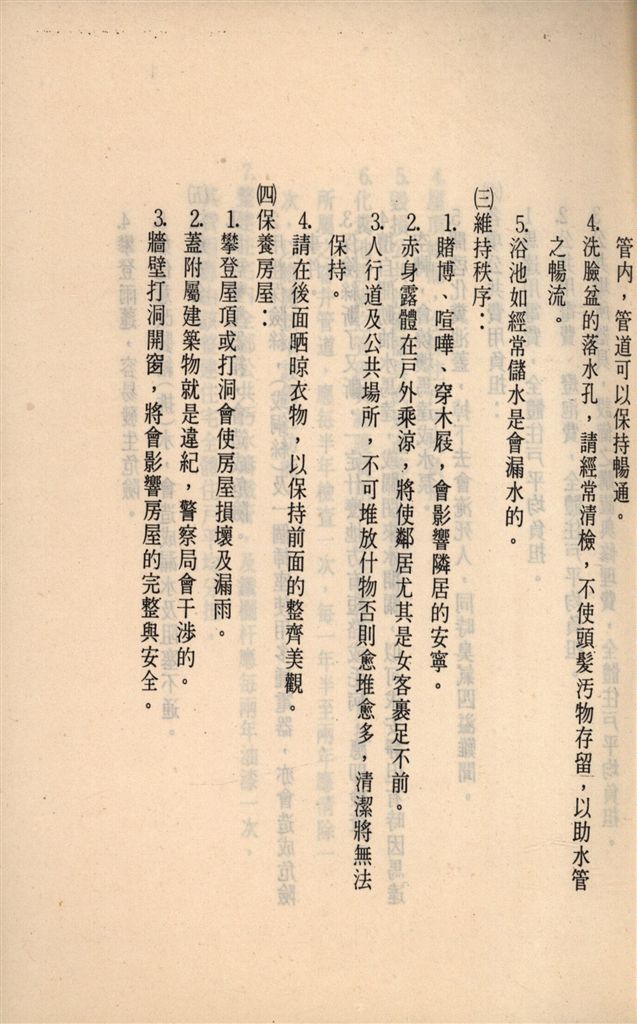 管內，管道可以保持暢通。
4.洗臉盆的落水孔，請經常清檢，不使頭髮汚物存留，以助水管
之暢流。
5.浴池如經常儲水是會漏水的。
㈢維持秩序：
1.賭博、喧嘩、穿木屐，會影響隣居的安寧。
2.赤身露體在戶外乘涼，將使鄰居尤其是女客裹足不前。
3.人行道及公共場所，不可堆放什物否則愈堆愈多，清潔將無法
保持。
4.請在後面晒晾衣物，以保持前面的整齊美觀。
㈣保養房屋：
1.攀登屋頂或打洞會使房屋損壞及漏雨。
2.蓋附屬建築物就是違紀，警察局會干涉的。
3.牆壁打洞開窗，將會影響房屋的完整與安全。